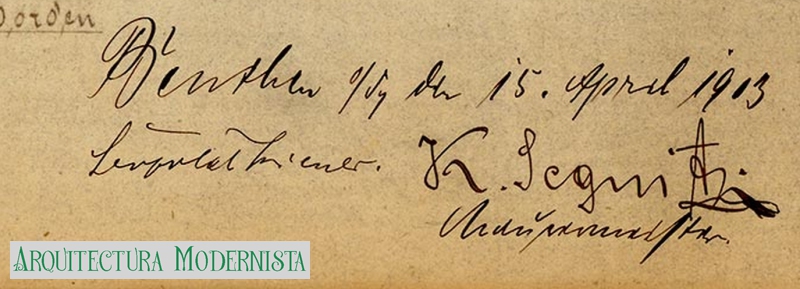 Beuthen o/S, den 15. April 1903
Leopold Wiener. K. Segnitz
Maurermeister.
ARQUITECTURA MODERNISTA